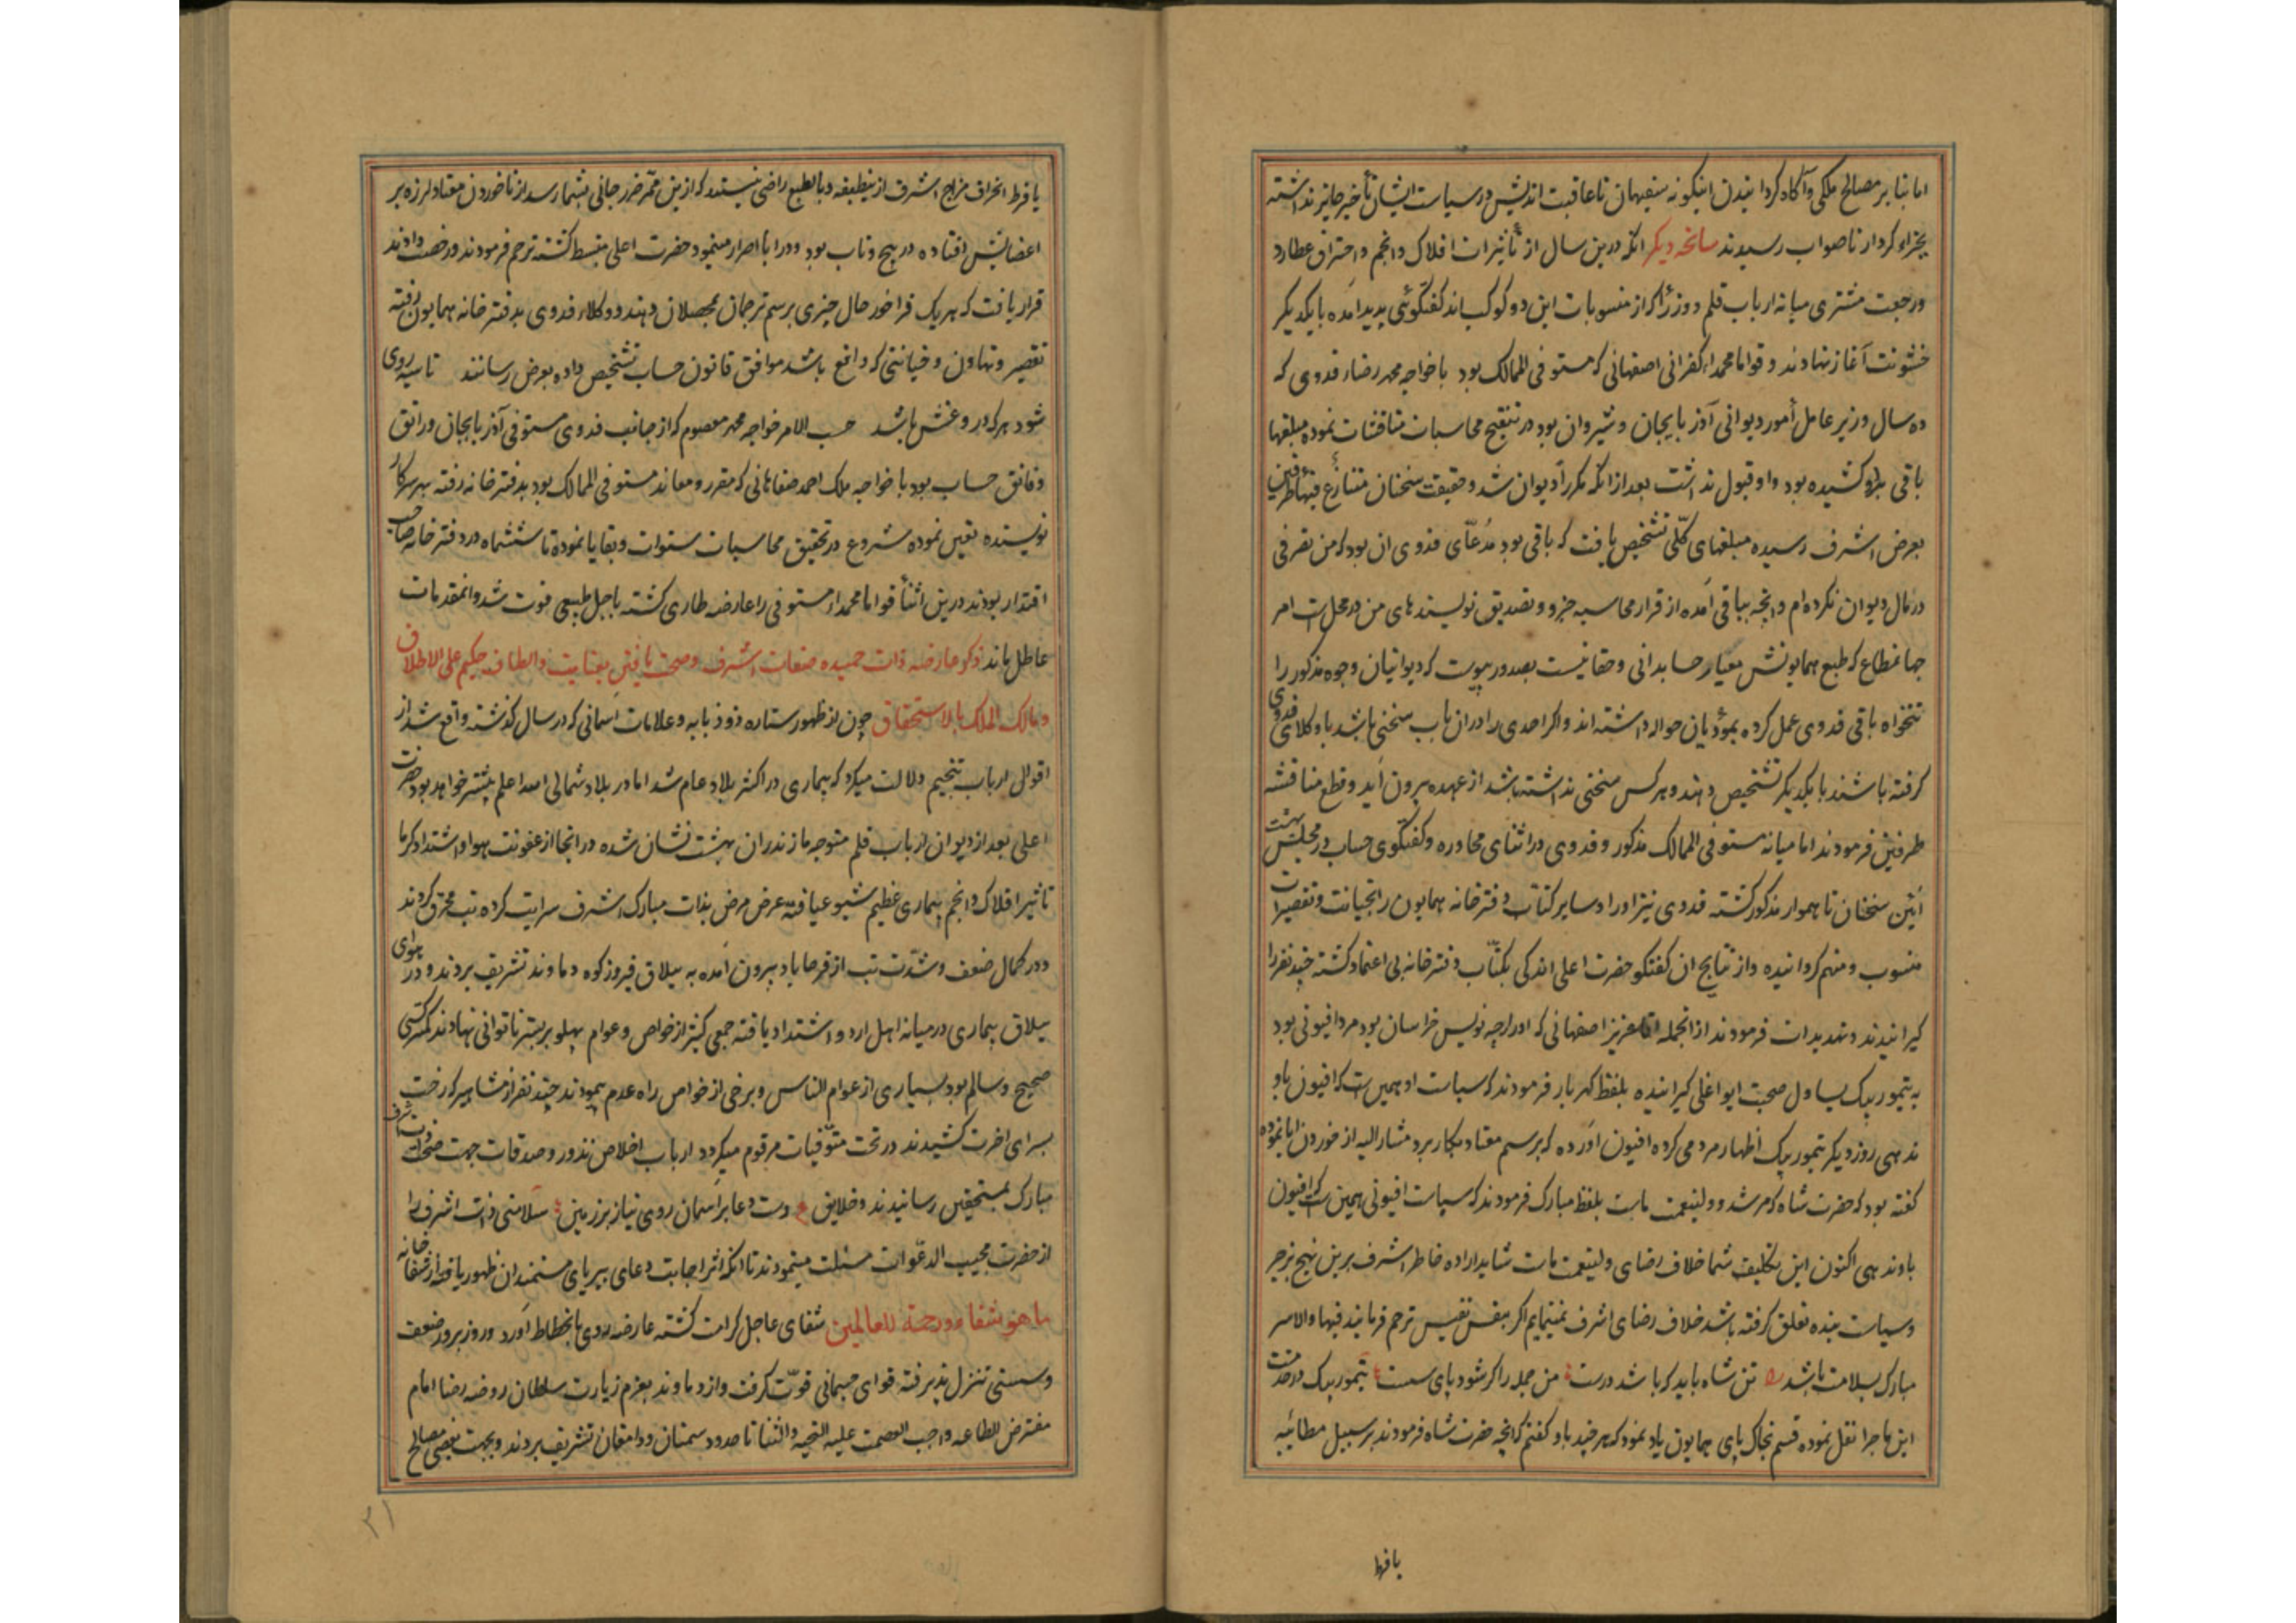 اما بنا بر مصالح ملکی و آگاه کردانیدن اینکونه سفیهان ناعاقبت اندیش در سیاست ایشان تأخیر جایز نداشته
بجزاء کردار ناصواب رسیدند سانحه دیکر انکه درین سال از تأثیرات افلاک و انجم و احتراق عطارد
و رجعت مشتری میانه ارباب قلم و وزرا که از منسوبات این دو کوکب اند کفتکوئی پدید آمده با یکدیکر
خشونت آغاز نهادند و قواما محمداء کفرانی اصفهانی که مستوفی الممالک بود با خواجه محمد رضاء فدوی که
ده سال وزیر عامل أمور دیوانی آذربایجان و شیروان بود در تنقیح محاسبات مناقشات نموده مبلغها
باقی براو کشیده بود و او قبول نداشت بعد از انکه مکررا دیوان شد و حقیقت سخنان متنازع فیها طرفین
بعرض اشرف رسیده مبلغهای کلّی تشخیص یافت که باقی بود مُدعّای فدوی ان بود که من تصرفی
در مال دیوان نکرده ام و انچه بباقی آمده از قرار محاسبه جزو و تصدیق نویسندهای من در محل است امر
جهانمطاع که طبع همایونش معیار حسابدانی و حقانیست بصدور پیوست که دیوانیان وجوه مذکور را
تنخواه باقی فدوی عمل کرده بمؤدیان حواله داشته اند و اکر احدی را در ان باب سخنی باشد با وکلای فدوی
کرفته باشند با یکدیکر تشخیص دهند و هر کس سخنی نداشته باشد از عهده بیرون آید و قطع مناقشه
طرفین فرمودند اما میانه مستوفی الممالک مذکور و فدوی در اثنای محاوره و کفتکوی حساب در مجلس بهشت
آئین سخنان ناهموار مذکور کشته فدوی نیز او را و سایر کتّاب دفترخانه همایون را بخیانت و تقصیرات
منسوب و متهم کردانیده و از نتایج ان کفتکو حضرت اعلی اندکی بکتّاب دفترخانه بی اعتماد کشته چند نفر را
کیرانیدند و تهدیدات فرمودند از انجمله اقا عزیز اصفهانی که اوارجه نویس خراسان بود مرد افیونی بود
به تیمور بیک یساول صحبت ایواغلی کیرانیده بلفظ کهربار فرمودند که سیاست او همین است که افیون باو
ندهی روز دیکر تیمور بیک أظهار مردمی کرده افیون آورده که برسم معتاد بکار برد مشار الیه از خوردن ابا نموده
کفته بود که حضرت شاه که مرشد و ولینعمت ماست بلفظ مبارک فرمودند که سیاست افیونی همین است که افیون
باو ندهی اکنون این تکلیف شما خلاف رضای ولینعمت ماست شاید اراده خاطر اشرف برین نهج بزجر
و سیاست بنده تعلق کرفته باشد خلاف رضای اشرف نمینمایم اکر بنفس نفیس ترحم فرمایند فبها و الا سر
مبارک بسلامت باشد تن شاه باید که باشد درست من جمله را کر شود پای سست تیمور بیک در خدمت
این ماجرا نقل نموده قسم بخاک پای همایون یاد نمود که هر چند باو کفتم که انچه حضرت شاه فرمودند بر سبیل مطائبه
با فرط
یا فرط انحراف مزاج اشرف ازینطیفه و بالطبع راضی نیستند که ازین ممّر ضرر جانی بشما رسد از ناخوردن معتاد لرزه بر
اعضایش افتاده در پیچ و تاب بود و در ابا اصرار مینمود حضرت اعلی منبسط کشته ترحم فرمودند و رخصت دادند
قرار یافت که هر یک فراخور حال چیزی برسم ترجمان بمحصلان دهند و وکلاء فدوی بدفترخانه همایون رفته
تقصیر و تهاون و خیانتی که واقع باشد موافق قانون حساب تشخیص داده بعرض رسانند تا سیه روی
شود هر که در و غش باشد حسب الامر خواجه محمد معصوم که از جانب فدوی مستوفی آذربایجان و راتق
و فاتق حساب بود با خواجه ملک احمد صفاهانی که مقرر و معاند مستوفی الممالک بود بدفترخانه رفته بهر سرکار
نویسنده تعین نموده شروع در تحقیق محاسبات سنوات و بقایا نموده تا ششماه در دفترخانه صاحب
اقتدار بودند درین اثنأ قواما محمداء مستوفی را عارضه طاری کشته باجل طبیعی فوت شد و انمقدمات
عاطل ماند ذکر عارضه ذات حمیده صفات اشرف و صحت یافتن بعنایت و الطاف حکیم علی الاطلاق
و مالک الملک بالاستحقاق چون از ظهور ستاره ذوذبابه و علامات آسمانی که در سال کذشته واقع شد از
اقوال ارباب تنجیم دلالت میکرد که بیماری در اکثر بلاد عام شد اما در بلاد شمالی الله اعلم بیشتر خواهد بود حضرت
اعلی بعد از دیوان ارباب قلم متوجه مازندران بهشت نشان شده در انجا از عفونت هوا و اشتداد کرما
تاثیر افلاک و انجم بیماری عظیم شیوع یافته عرض مرض بذات مبارک اشرف سرایت کرده تب محرق کردند
و در کمال ضعف و شدّت تب از فرحاباد بیرون آمده به ییلاق فیروزکوه و دماوند تشریف بردند و در هوای
ییلاق بیماری در میانه اهل اردو اشتداد یافته جمعی کثیر از خواص و عوام پهلو بر بستر ناتوانی نهادند کمتر کسی
صحیح و سالم بود بسیاری از عوام الناس و برخی از خواص راه عدم پیمودند چند نفر از مشاهیر که رخت
بسرای اخرت کشیدند در تحت متوّفیات مرقوم میکردد ارباب اخلاص نذور و صدقات جهت صحت ذات اشرف
مبارک بمستحقین رسانیدند و خلایق ع دست دعا بر آسمان روی نیاز بر زمین سلامتی ذات اشرف را
از حضرت مجیب الدعّوات مسئلت مینمودند تا انکه اثر اجابت دعای بیریای مستمندان ظهور یافته از شفاخانه
ما هو شفاء و رحمة للعالمین شفای عاجل کرامت کشته عارضه رودی بانحطاط آورد و روز بروز ضعف
و سستی تنزل پذیرفته قوای جسمانی قوّت کرفت و از دماوند بعزم زیارت سلطان روضه رضا امام
مفترض الطاعه واجب العصمت علیه التحیه و الثنا تا حدود سمنان و دامغان تشریف بردند و بجهت بعضی مصالح
۳۱